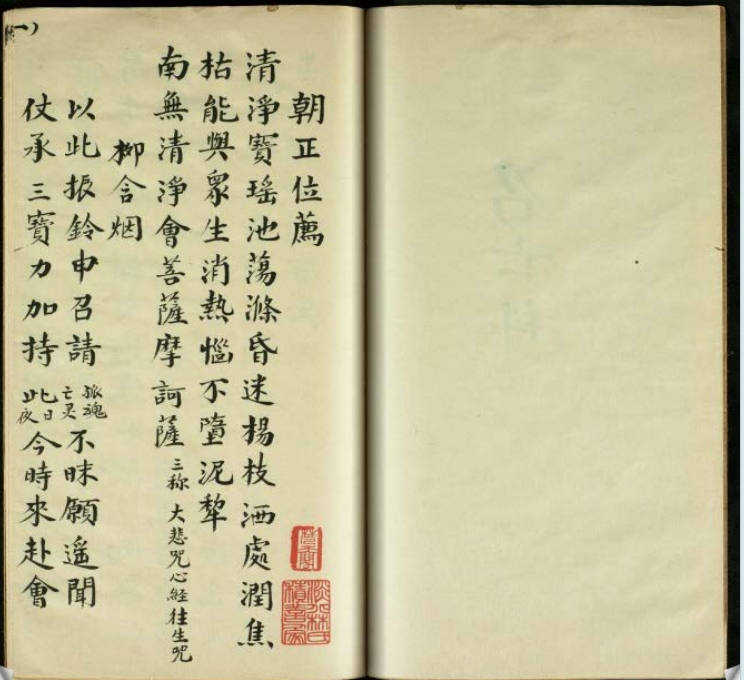 朝正位薦
清淨寶瑤池蕩滌昏迷揚枝洒處潤焦
枯能與衆生消熱惱不墮泥犂
南無清淨會菩薩摩訶薩 三称 大悲咒心經往生咒
柳含烟
以此振鈴申召請 孤魂 亡灵 不昧願遥聞
仗承三寶力加持 此日 夜 今時來赴會